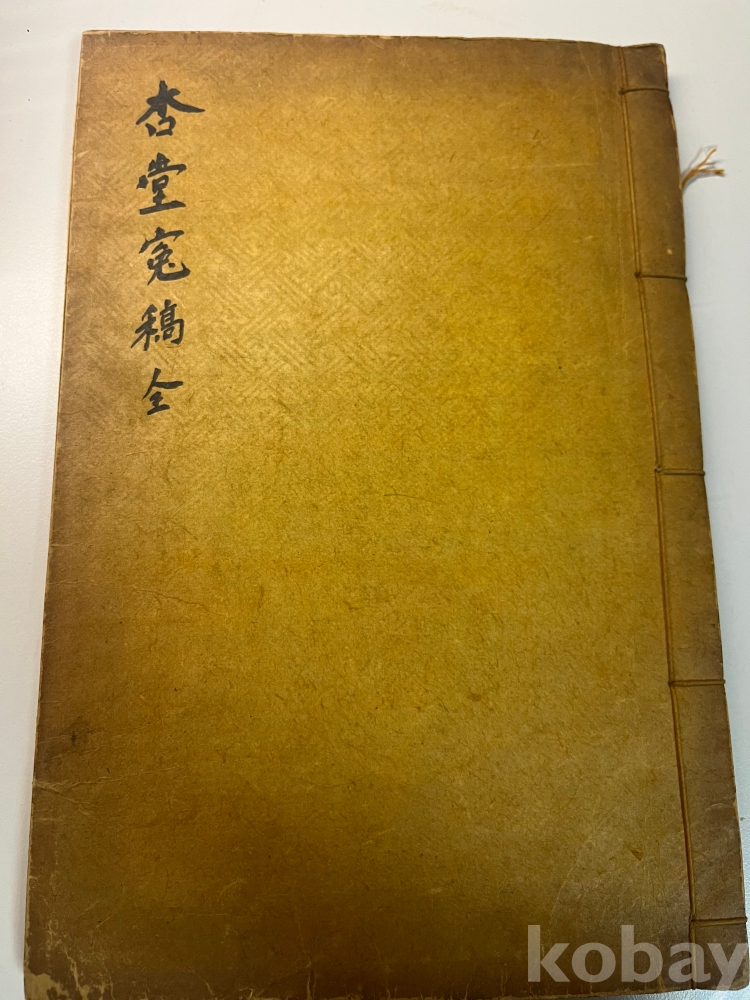 杏堂寃稿全
kobay